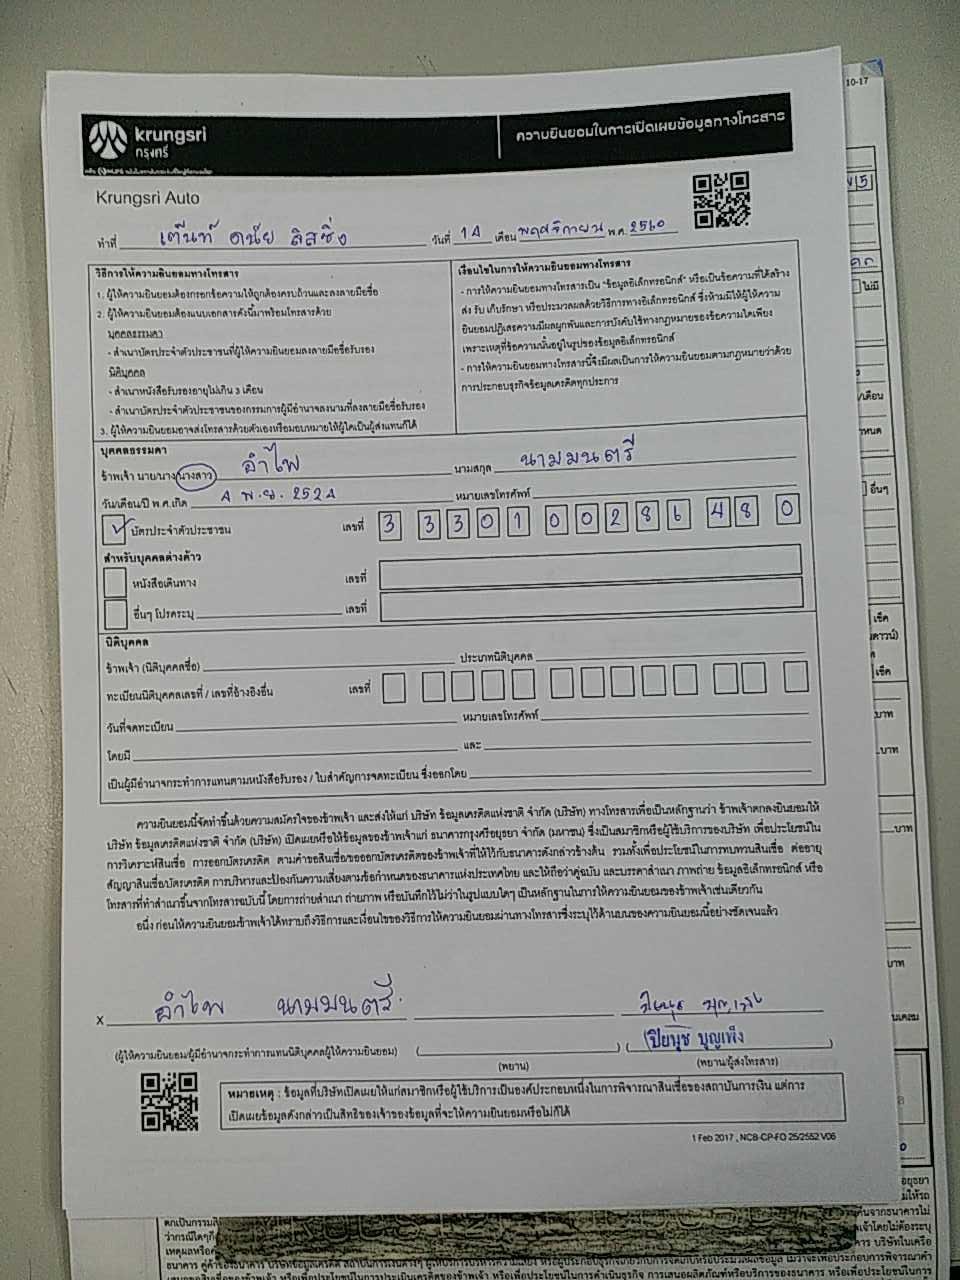 krungsri
กรุงศรี
ความยินยอมในการเปิดเผยข้อมูลทางโทรสาร
10-17
Krungsri Auto
ทำที่ เต็นท์ ดนัย ลิสซิ่ง วันที่ 14 เดือน พฤศจิกายน พ.ศ. 2560
วิธีการให้ความยินยอมทางโทรสาร
1. ผู้ให้ความยินยอมต้องกรอกข้อความให้ถูกต้องครบถ้วนและลงลายมือชื่อ
2. ผู้ให้ความยินยอมต้องแนบเอกสารดังนี้มาพร้อมโทรสารด้วย
บุคคลธรรมดา
- สำเนาบัตรประจำตัวประชาชนที่ผู้ให้ความยินยอมลงลายมือชื่อรับรอง
นิติบุคคล
- สำเนาหนังสือรับรองอายุไม่เกิน 3 เดือน
- สำเนาบัตรประจำตัวประชาชนของกรรมการผู้มีอำนาจลงนามที่ลงลายมือชื่อรับรอง
3. ผู้ให้ความยินยอมอาจส่งโทรสารด้วยตัวเองหรือมอบหมายให้ผู้ใดเป็นผู้ส่งแทนก็ได้
เงื่อนไขในการให้ความยินยอมทางโทรสาร
- การให้ความยินยอมทางโทรสารเป็น "ข้อมูลอิเล็กทรอนิกส์" หรือเป็นข้อความที่ได้สร้าง
ส่ง รับ เก็บรักษา หรือประมวลผลด้วยวิธีการทางอิเล็กทรอนิกส์ ซึ่งห้ามมิให้ผู้ให้ความ
ยินยอมปฏิเสธความมีผลผูกพันและการบังคับใช้ทางกฎหมายของข้อความใดเพียง
เพราะเหตุที่ข้อความนั้นอยู่ในรูปของข้อมูลอิเล็กทรอนิกส์
- การให้ความยินยอมทางโทรสารนี้จึงมีผลเป็นการให้ความยินยอมตามกฎหมายว่าด้วย
การประกอบธุรกิจข้อมูลเครดิตทุกประการ
บุคคลธรรมดา
ข้าพเจ้า นาย/นาง/นางสาว อำไพ นามสกุล นามมนตรี
วัน/เดือน/ปี พ.ศ.เกิด 4 พ.ย. 2524 หมายเลขโทรศัพท์
บัตรประจำตัวประชาชน เลขที่ 3 3301 00286 48 0
สำหรับบุคคลต่างด้าว
หนังสือเดินทาง เลขที่
อื่นๆ โปรดระบุ เลขที่
นิติบุคคล
ข้าพเจ้า (นิติบุคคลชื่อ) ประเภทนิติบุคคล
ทะเบียนนิติบุคคลเลขที่ / เลขที่อ้างอิงอื่น เลขที่
วันที่จดทะเบียน หมายเลขโทรศัพท์
โดยมี และ
เป็นผู้มีอำนาจกระทำการแทนตามหนังสือรับรอง / ใบสำคัญการจดทะเบียน ซึ่งออกโดย
ความยินยอมนี้จัดทำขึ้นด้วยความสมัครใจของข้าพเจ้า และส่งให้แก่ บริษัท ข้อมูลเครดิตแห่งชาติ จำกัด (บริษัท) ทางโทรสารเพื่อเป็นหลักฐานว่า ข้าพเจ้าตกลงยินยอมให้
บริษัท ข้อมูลเครดิตแห่งชาติ จำกัด (บริษัท) เปิดเผยหรือให้ข้อมูลของข้าพเจ้าแก่ ธนาคารกรุงศรีอยุธยา จำกัด (มหาชน) ซึ่งเป็นสมาชิกหรือผู้ใช้บริการของบริษัท เพื่อประโยชน์ใน
การวิเคราะห์สินเชื่อ การออกบัตรเครดิต ตามคำขอสินเชื่อ/ขอออกบัตรเครดิตของข้าพเจ้าที่ให้ไว้กับธนาคารดังกล่าวข้างต้น รวมทั้งเพื่อประโยชน์ในการทบทวนสินเชื่อ ต่ออายุ
สัญญาสินเชื่อ/บัตรเครดิต การบริหารและป้องกันความเสี่ยงตามข้อกำหนดของธนาคารแห่งประเทศไทย และให้ถือว่าคู่ฉบับ และบรรดาสำเนา ภาพถ่าย ข้อมูลอิเล็กทรอนิกส์ หรือ
โทรสารที่ทำสำเนาขึ้นจากโทรสารฉบับนี้ โดยการถ่ายสำเนา ถ่ายภาพ หรือบันทึกไว้ไม่ว่าในรูปแบบใดๆ เป็นหลักฐานในการให้ความยินยอมของข้าพเจ้าเช่นเดียวกัน
อนึ่ง ก่อนให้ความยินยอมข้าพเจ้าได้ทราบถึงวิธีการและเงื่อนไขของวิธีการให้ความยินยอมผ่านทางโทรสารซึ่งระบุไว้ด้านบนของความยินยอมนี้อย่างชัดเจนแล้ว
X อำไพ นามมนตรี
(ปิยนุช บุญเพ็ง)
(ผู้ให้ความยินยอม/ผู้มีอำนาจกระทำการแทนนิติบุคคลผู้ให้ความยินยอม)
(พยาน) (พยาน/ผู้ส่งโทรสาร)
หมายเหตุ : ข้อมูลที่บริษัทเปิดเผยให้แก่สมาชิกหรือผู้ใช้บริการเป็นองค์ประกอบหนึ่งในการพิจารณาสินเชื่อของสถาบันการเงิน แต่การ
เปิดเผยข้อมูลดังกล่าวเป็นสิทธิของเจ้าของข้อมูลที่จะให้ความยินยอมหรือไม่ก็ได้
1 Feb 2017 , NCB-CP-FO 25/2552 V06